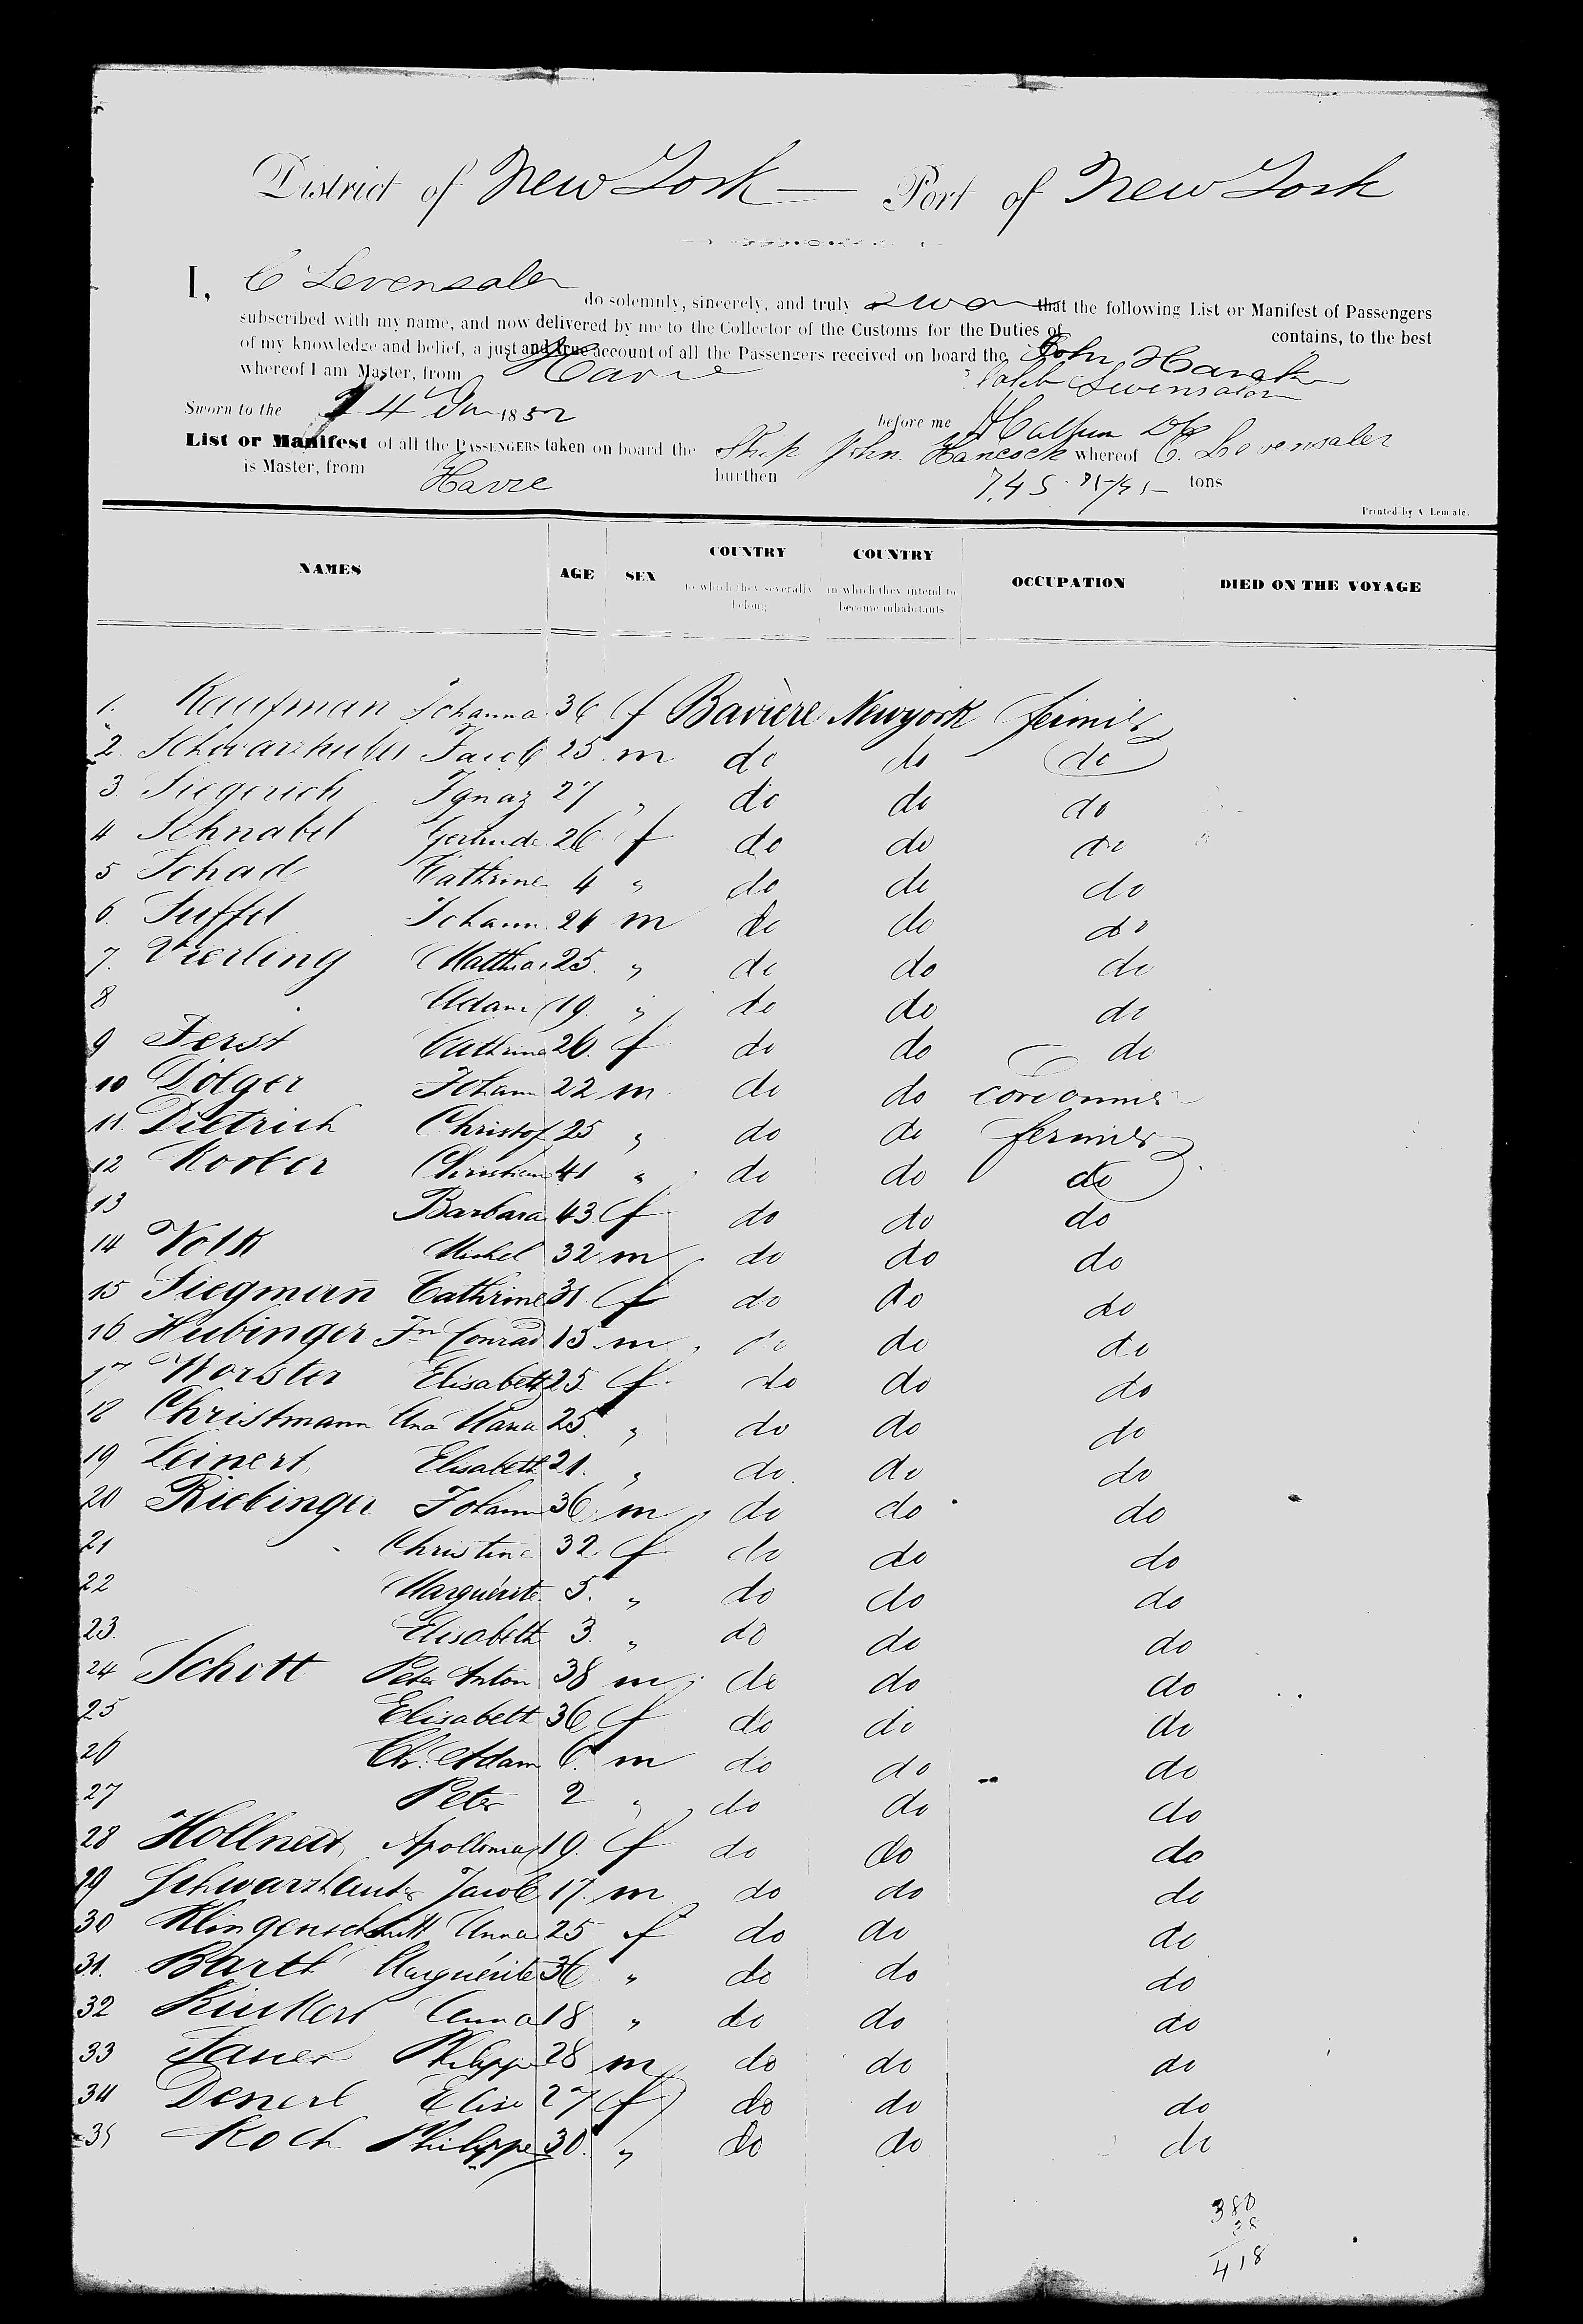 District of New York — Port of New York
I, C Levensaler do solemnly, sincerely, and truly swear that the following List or Manifest of Passengers
subscribed with my name, and now delivered by me to the Collector of the Customs for the Duties of contains, to the best
of my knowledge and belief, a just and true account of all the Passengers received on board the John Hancock
whereof I am Master, from Havre
Caleb Levensaler
Sworn to the 4 1852 before me
List or Manifest of all the PASSENGERS taken on board the Ship John Hancock whereof C. Levensaler
is Master, from Havre burthen 745 tons
Printed by A. Lemale.
NAMES AGE SEX COUNTRY to which they severally belong COUNTRY in which they intend to become inhabitants OCCUPATION DIED ON THE VOYAGE
1. Kaufman Johanna 36 f Bavière Newyork fermier
2. Schwarzhuber Jacob 25 m do do do
3. Siegerich Ignaz 27 " do do do
4 Schnabel Gertrude 26 f do do do
5 Schad Cathrine 4 " do do do
6. Suffel Johann 24 m do do do
7. Vierling Matthias 25. " do do do
8 Adam 19. " do do do
9 Ferst Cathrine 26. f do do do
10 Dölger Johann 22 m do do cordonnier
11. Dietrich Christof 25 " do do fermier
12 Koerber Christian 41 " do do do
13 Barbara 43. f do do do
14 Volk Michel 32 m do do do
15 Siegmañ Cathrine 31. f do do do
16. Hubinger Jn Conrad 15 m do do do
17 Worster Elisabeth 25. f do do do
18 Christmann Ana Maria 25. " do do do
19 Leinert Elisabeth 21. " do do do
20 Riebinger Johann 36 m do do do
21 Christine 32. f do do do
22 Marguérite 5. " do do do
23. Elisabeth 3. " do do do
24 Schott Peter Anton 38 m do do do
25 Elisabeth 36 f do do do
26 Chr. Adam 6. m do do do
27 Peter 2 " do do do
28 Apollonia 19. f do do do
29 Schwarzhauter Jacob 17. m do do do
30 Klingenschmitt Anna 25 f do do do
31. Barth Marguérite 36 " do do do
32 Anna 18 " do do do
33 Sauer Philippe 28 m do do do
34 Denerl Elise 27 f do do do
35 Koch Philippe 30. " do do do
380
38
418